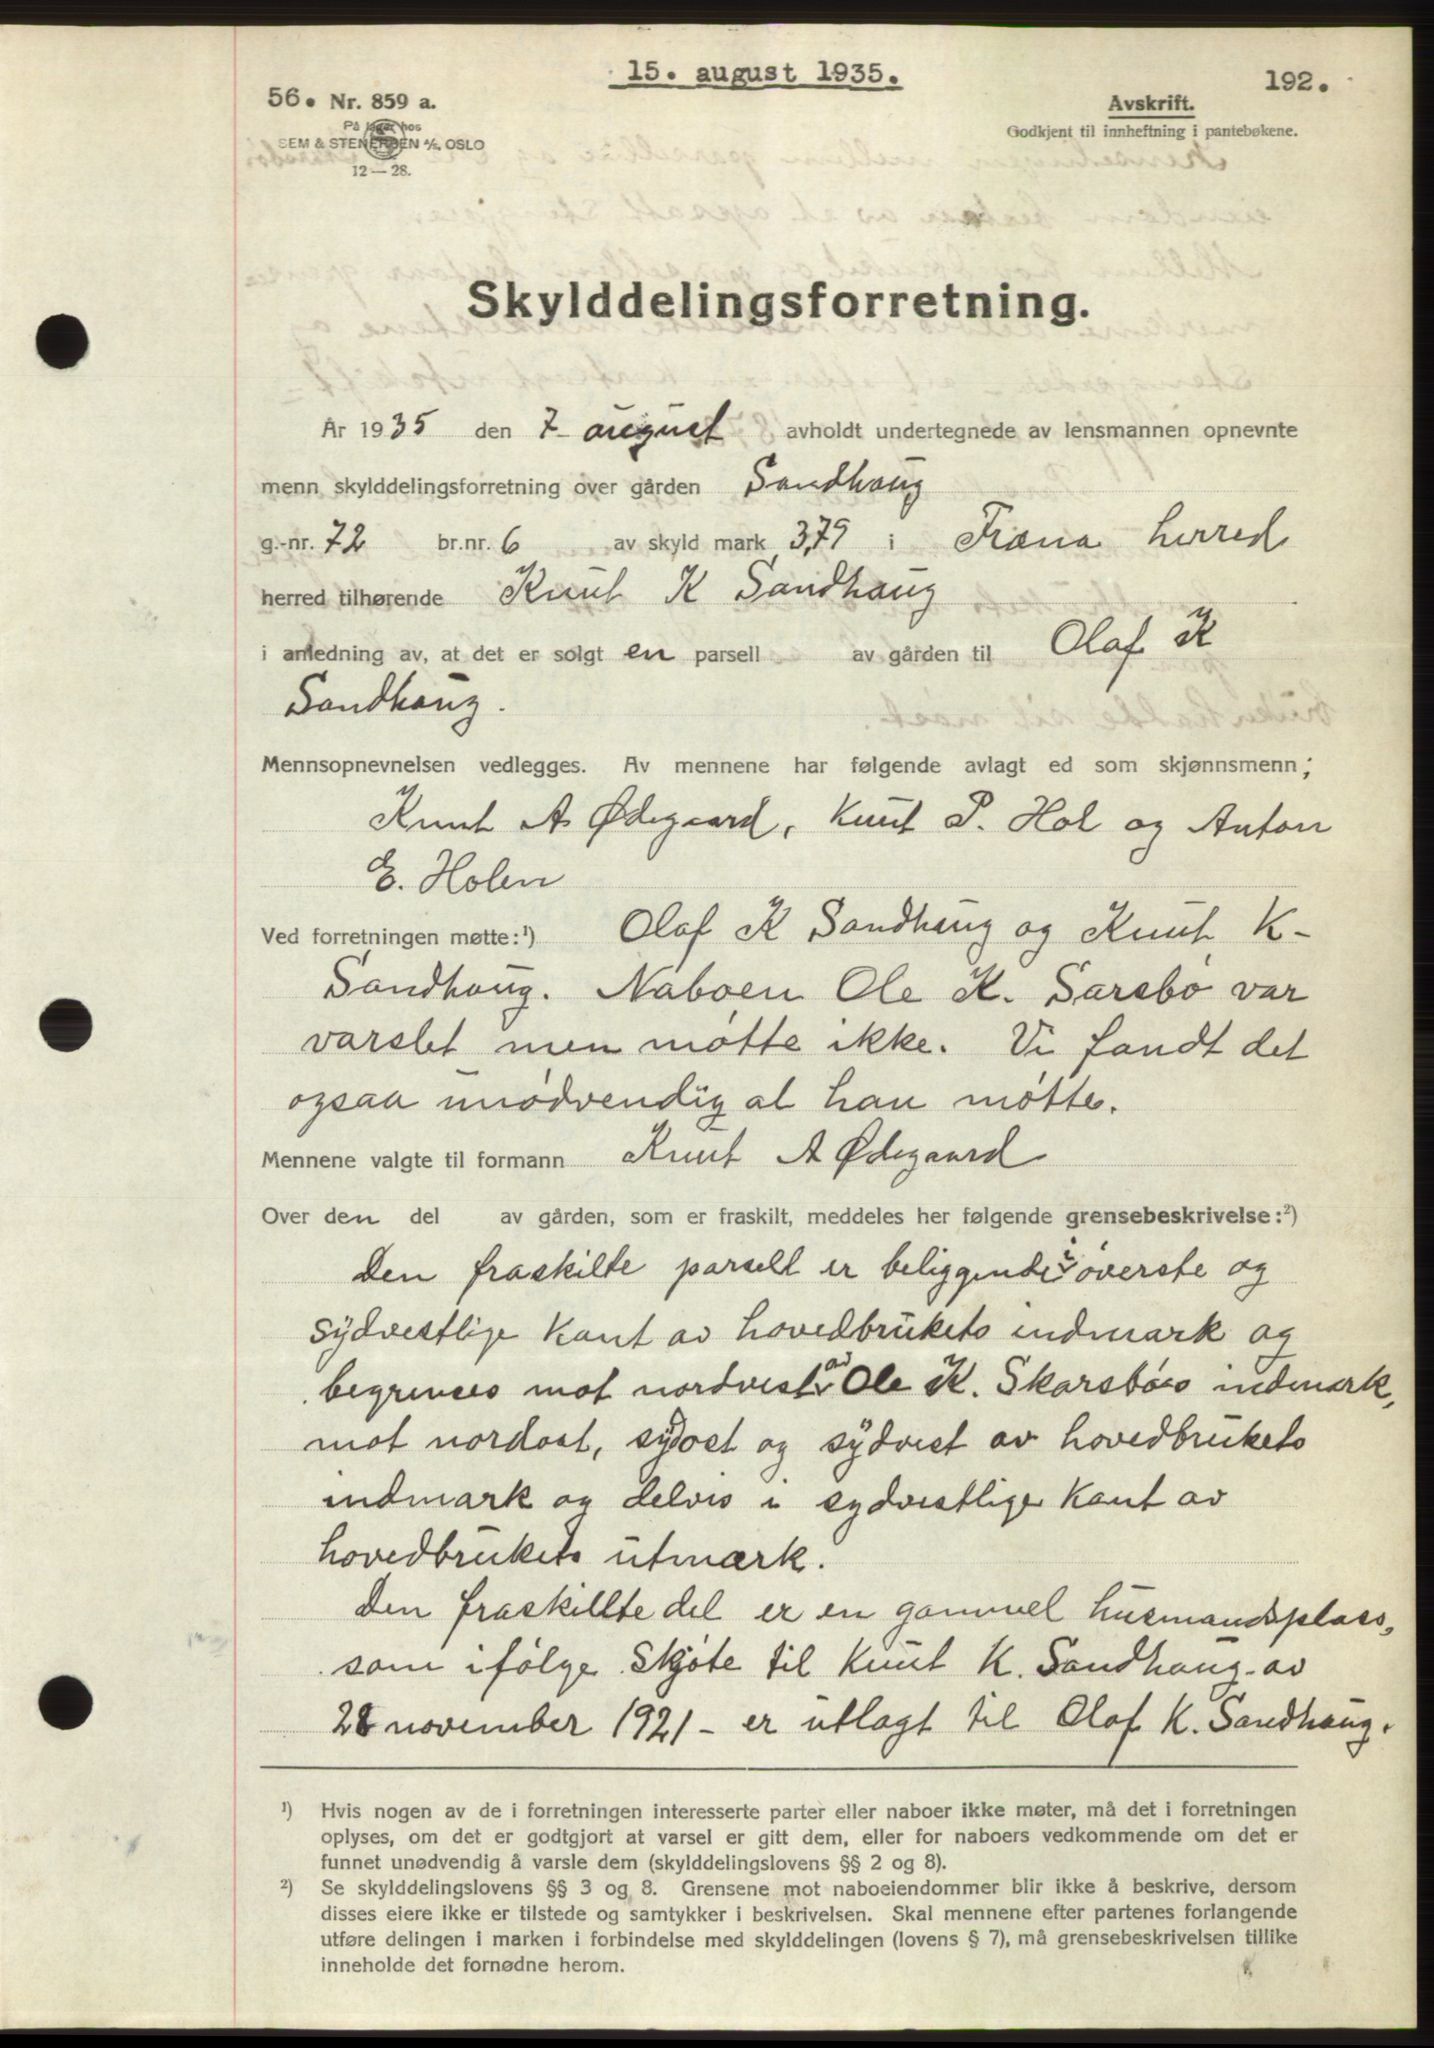 15. august 1935.
192.
56. Nr. 859 a.
På lager hos
SEM & STENERSEN A/S, OSLO
12 — 28.
Avskrift.
Godkjent til innheftning i pantebøkene.
Skylddelingsforretning.
År 1935 den 7 august avholdt undertegnede av lensmannen opnevnte
menn skylddelingsforretning over gården Sandhaug
g.-nr. 72 br.nr. 6 av skyld mark 3,79 i Fræna herred
herred tilhørende Knut K Sandhaug
i anledning av, at det er solgt en parsell av gården til Olaf K
Sandhaug.
Mennsopnevnelsen vedlegges. Av mennene har følgende avlagt ed som skjønnsmenn;
Knut A Ødegaard, Knut P. Hol og Anton
E. Holen
Ved forretningen møtte:¹) Olaf K Sandhaug og Knut K-
Sandhaug. Naboen Ole K. Sarsbø var
varslet men møtte ikke. Vi fandt det
ogsaa unødvendig at han møtte.
Mennene valgte til formann Knut A Ødegaard
Over den del av gården, som er fraskilt, meddeles her følgende grensebeskrivelse:²)
Den fraskilte parsell er beliggende i øverste og
sydvestlige kant av hovedbrukets indmark og
begrenses mot nordvest av Ole K. Skarsbøs indmark,
mot nordost, sydost og sydvest av hovedbrukets
indmark og delvis i sydvestlige kant av
hovedbrukets utmærk.
Den fraskillte del er en gammel husmandsplass,
som ifølge skjøte til Knut K. Sandhaug av
28 november 1921 - er utlagt til Olaf K. Sandhaug.
¹) Hvis nogen av de i forretningen interesserte parter eller naboer ikke møter, må det i forretningen
oplyses, om det er godtgjort at varsel er gitt dem, eller for naboers vedkommende om det er
funnet unødvendig å varsle dem (skylddelingslovens §§ 2 og 8).
²) Se skylddelingslovens §§ 3 og 8. Grensene mot naboeiendommer blir ikke å beskrive, dersom
disses eiere ikke er tilstede og samtykker i beskrivelsen. Skal mennene efter partenes forlangende
utføre delingen i marken i forbindelse med skylddelingen (lovens § 7), må grensebeskrivelsen tillike
inneholde det fornødne herom.